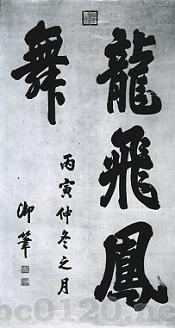 龍飛鳳
舞
丙寅仲冬之月
御筆
bc0120.ne